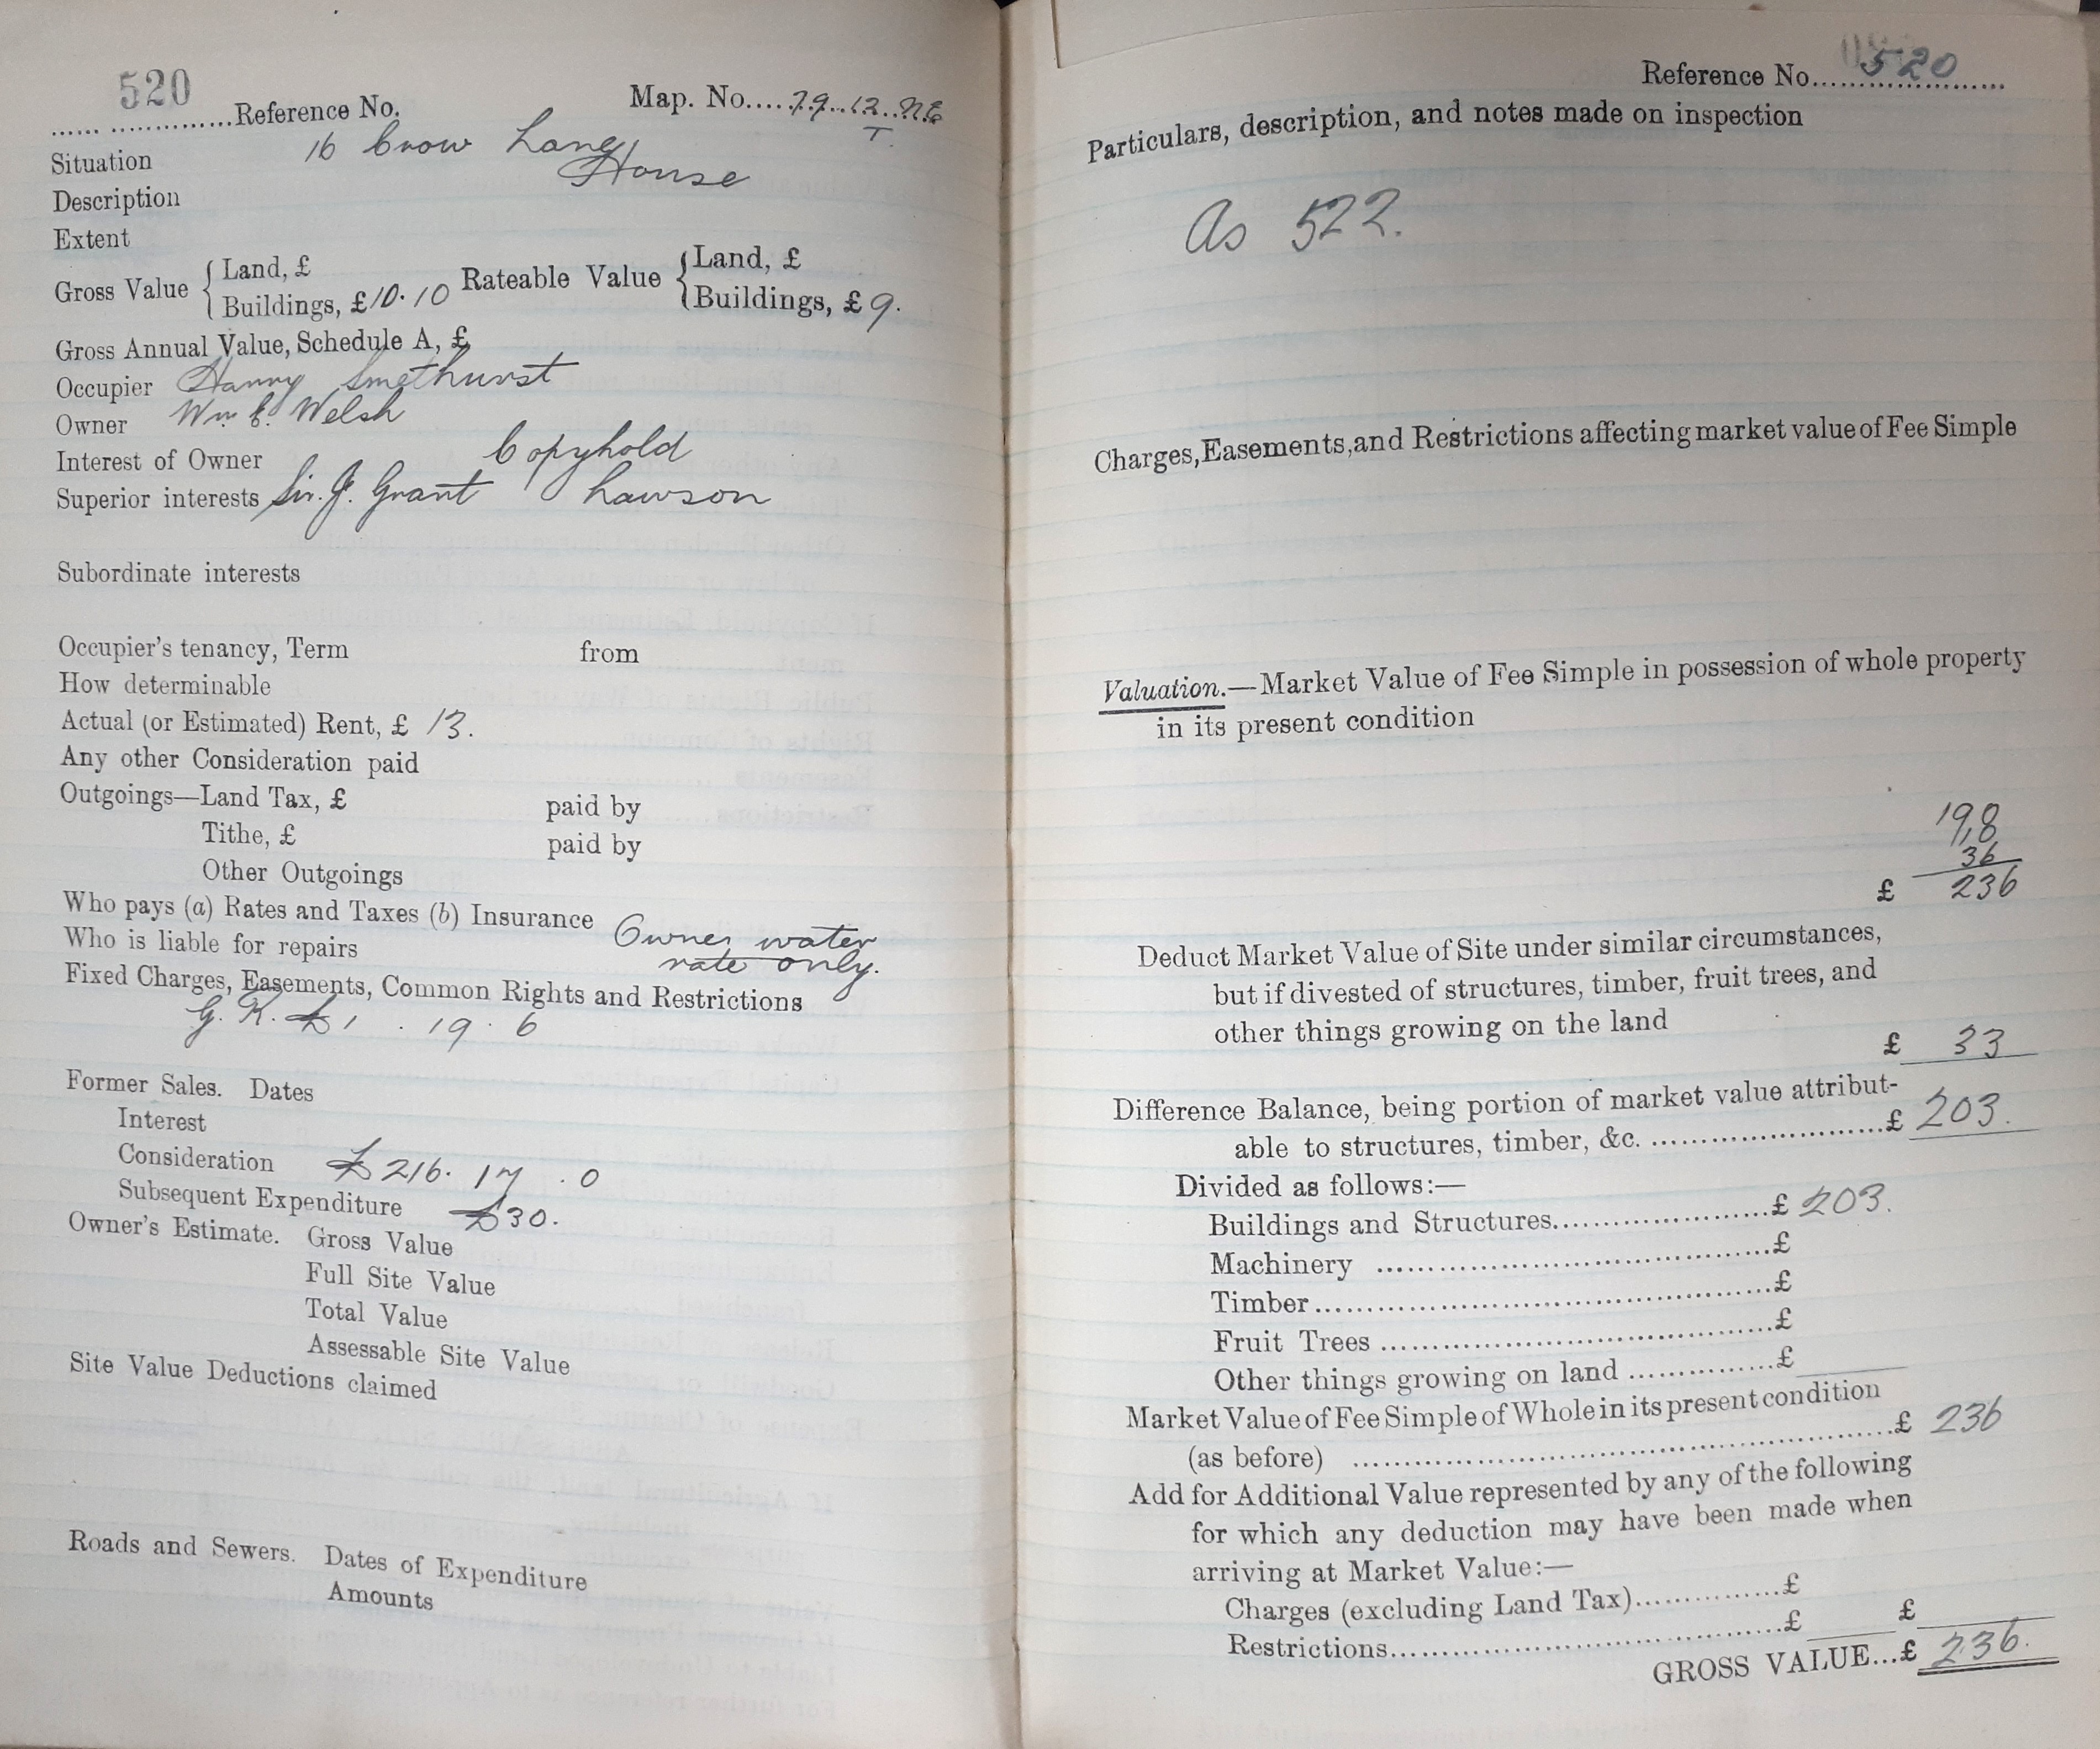 520
...... ...............Reference No.
Map. No....79..12..N.E
T.
Situation 16 Crow Lane
Description House
Extent
Gross Value { Land, £
Buildings, £10.10
Rateable Value { Land, £
Buildings, £9.
Gross Annual Value, Schedule A, £
Occupier Harry Smethurst
Owner Wm. E. Welsh
Interest of Owner Copyhold
Superior interests Sir. J. Grant Lawson
Subordinate interests
Occupier's tenancy, Term from
How determinable
Actual (or Estimated) Rent, £ 13.
Any other Consideration paid
Outgoings—Land Tax, £ paid by
Tithe, £ paid by
Other Outgoings
Who pays (a) Rates and Taxes (b) Insurance Owner water
Who is liable for repairs rate only.
Fixed Charges, Easements, Common Rights and Restrictions
G. R. £1 . 19 . 6
Former Sales. Dates
Interest
Consideration £216. 17 . 0
Subsequent Expenditure £30.
Owner's Estimate. Gross Value
Full Site Value
Total Value
Assessable Site Value
Site Value Deductions claimed
Roads and Sewers. Dates of Expenditure
Amounts
Reference No....520....
Particulars, description, and notes made on inspection
As 522.
Charges, Easements, and Restrictions affecting market value of Fee Simple
Valuation.—Market Value of Fee Simple in possession of whole property
in its present condition
198
36
£ 236
Deduct Market Value of Site under similar circumstances,
but if divested of structures, timber, fruit trees, and
other things growing on the land
£ 33
Difference Balance, being portion of market value attribut-
able to structures, timber, &c. ............................£ 203.
Divided as follows:—
Buildings and Structures..........................£ 203.
Machinery ..............................................£
Timber.....................................................£
Fruit Trees ..............................................£
Other things growing on land .................£
Market Value of Fee Simple of Whole in its present condition
(as before) ...............................................................£ 236
Add for Additional Value represented by any of the following
for which any deduction may have been made when
arriving at Market Value:—
Charges (excluding Land Tax)................£
Restrictions..............................................£ £
GROSS VALUE...£ 236.